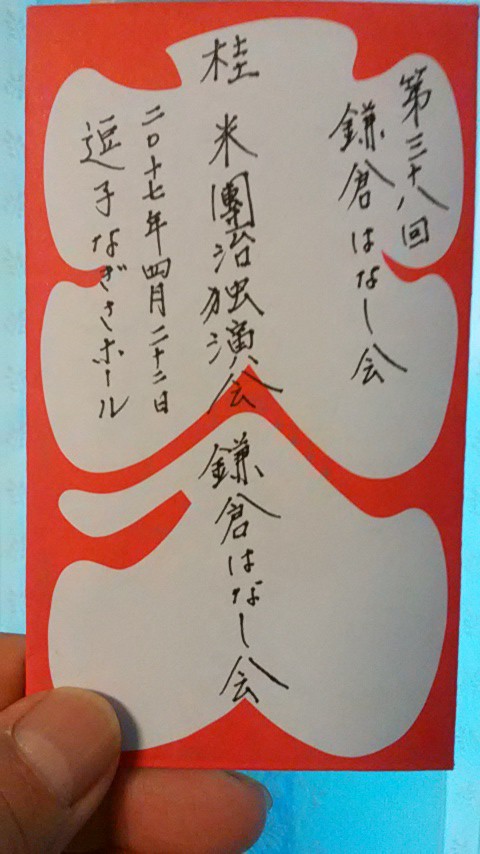 第三十八回
鎌倉はなし会
桂 米團治独演会
鎌倉はなし会
二〇十七年四月二十二日
逗子なぎさホール